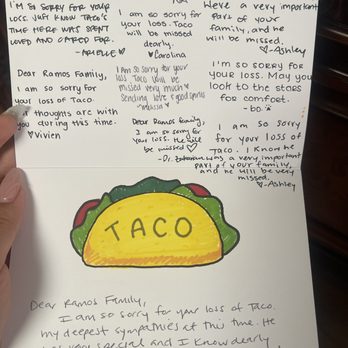 I'M SO SORRY FOR YOUR
LOSS. JUST KNOW TACO'S
TIME HERE WAS SPENT
LOVED AND CARED FOR.
I am so sorry
for your loss. Taco
will be missed
dearly.
♡Carolina
Were a very important
part of your
family, and he
will be missed.
♡-Ashley
Dear Ramos Family,
I am so sorry for
your loss of Taco.
thoughts are with
you during this time.
♡Vivien
I am so sorry for your
loss Taco will be
missed very much
Sending love & good
I'm so sorry
for your loss. May you
look to the stars
for comfort.
-bo
Dear Ramos family,
I am so sorry for
your loss. He will
be missed
-Dr.
I am so sorry
for your loss of
Taco. I know He
was a very important
part of your family,
and he will be very
missed.
♡-Ashley
TACO
Dear Ramos Family,
I am so sorry for your loss of Taco.
my deepest sympathies at this time. He
very special and I know dearly